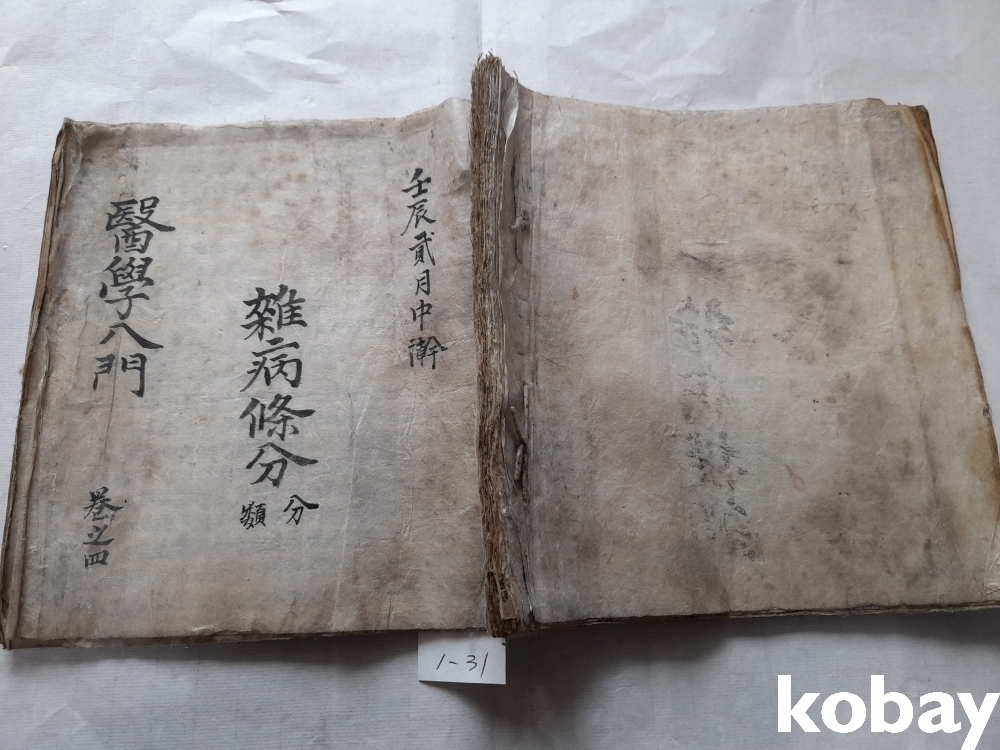 壬辰貳月中澣
雜病條分
分
類
醫學八門
卷之四
1-31
kobay